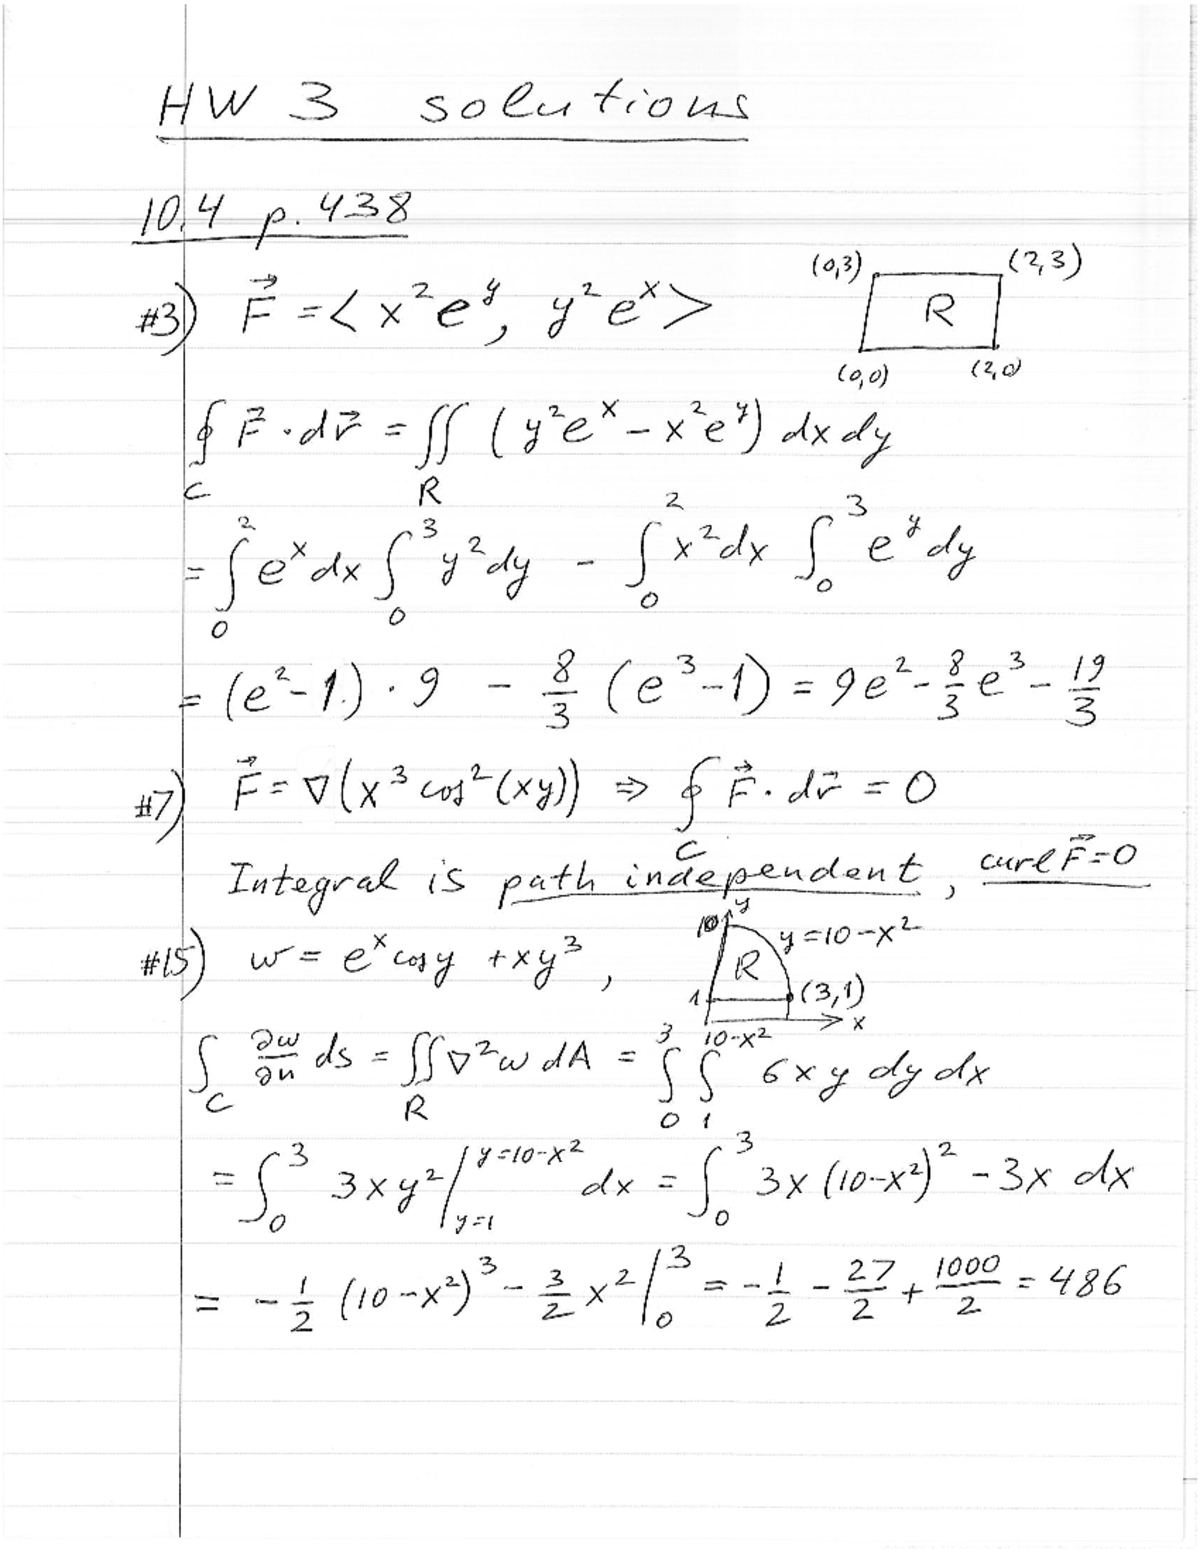 HW 3 solutions
10.4 p. 438
#3) F⃗ = < x² e^y, y² e^x >
(0,3) (2,3)
R
(0,0) (2,0)
∮_C F⃗ · dr⃗ = ∬_R ( y² e^x − x² e^y ) dx dy
= ∫_0^2 e^x dx ∫_0^3 y² dy - ∫_0^2 x² dx ∫_0^3 e^y dy
= (e² - 1) · 9 - 8/3 (e³ - 1) = 9e² - 8/3 e³ - 19/3
#7) F⃗ = ∇(x³ cos²(xy)) ⇒ ∮_C F⃗ · dr⃗ = 0
Integral is path independent, curl F⃗ = 0
#15) w = e^x cos y + xy³,
10 y
y = 10 - x²
R
1 (3,1)
x
∫_C ∂w/∂n ds = ∬_R ∇² w dA = ∫_0^3 ∫_1^{10-x²} 6xy dy dx
= ∫_0^3 3xy² |_{y=1}^{y=10-x²} dx = ∫_0^3 3x (10-x²)² - 3x dx
= - 1/2 (10 - x²)³ - 3/2 x² |_0^3 = - 1/2 - 27/2 + 1000/2 = 486